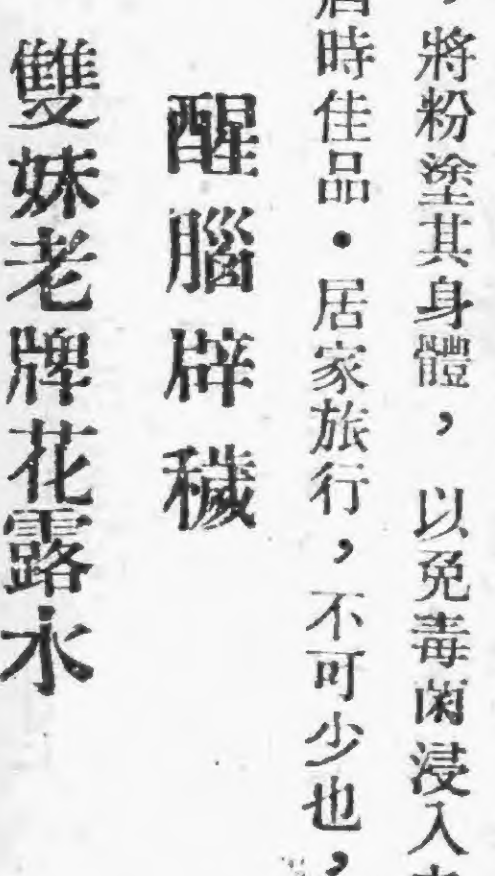 ，將粉塗其身體，以免毒菌浸入
時佳品・居家旅行，不可少也，
醒腦辟穢
雙妹老牌花露水